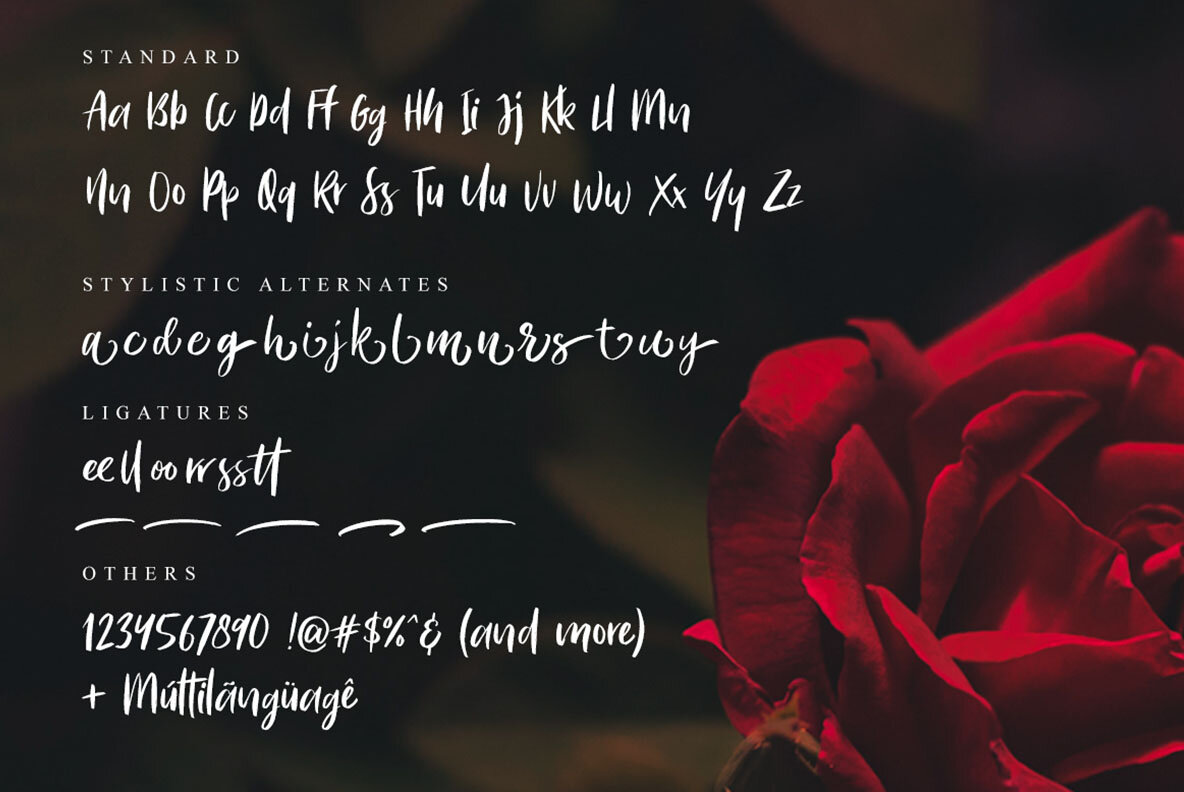 STANDARD
Aa Bb Cc Dd Ff Gg Hh Ii Jj Kk Ll Mn
Nn Oo Pp Qq Rr Ss Tu Uu Vv Ww Xx Yy Zz
STYLISTIC ALTERNATES
acdeghijklmnrstwy
LIGATURES
eelloorrsstt
OTHERS
1234567890 !@#$%^& (and more)
+ Múttilängüagê